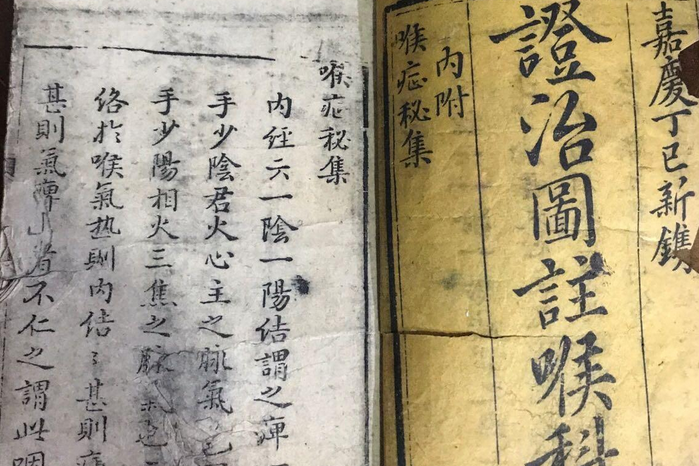 嘉慶丁巳新鐫
證治圖註喉科
內附
喉症秘集
喉症秘集
內經云一陰一陽结謂之痺
手少陰君火心主之脉氣也
手少陽相火三焦之脉氣也
络於喉氣热則內结结甚則
甚則氣痺
不仁之謂此